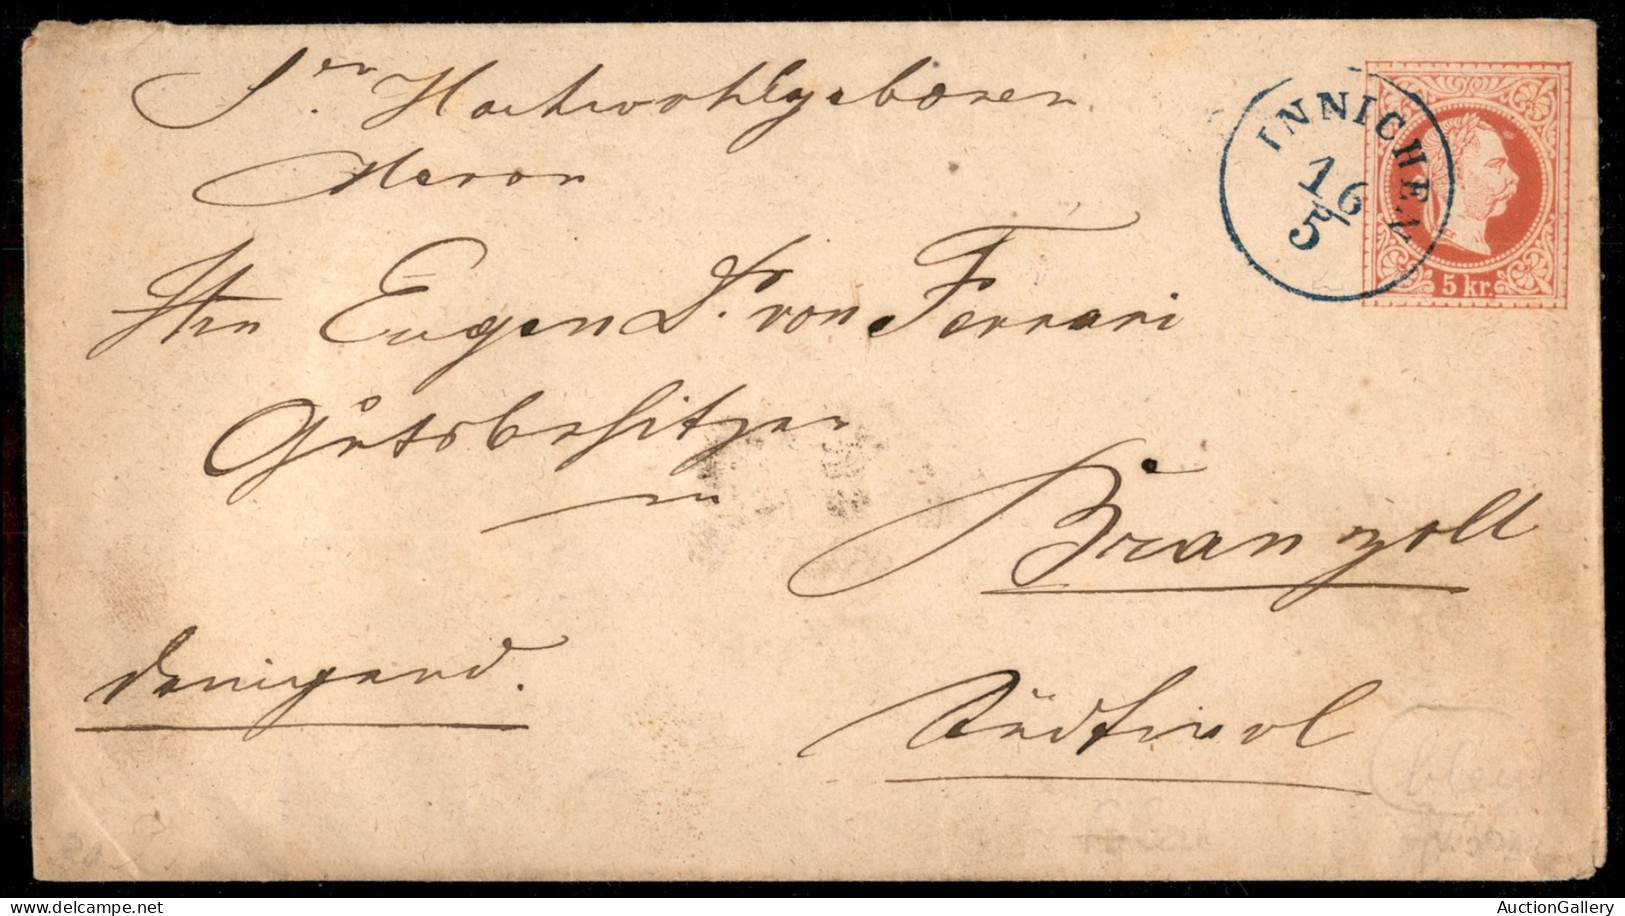 Sr. Hochwohlgeboren
Herrn
INNICHEN
16
5
5 kr.
Hrn Eugen Dr. von Ferrari
Gutsbesitzer
in
Branzoll
Südtirol
dringend.
bleu
AuctionGallery